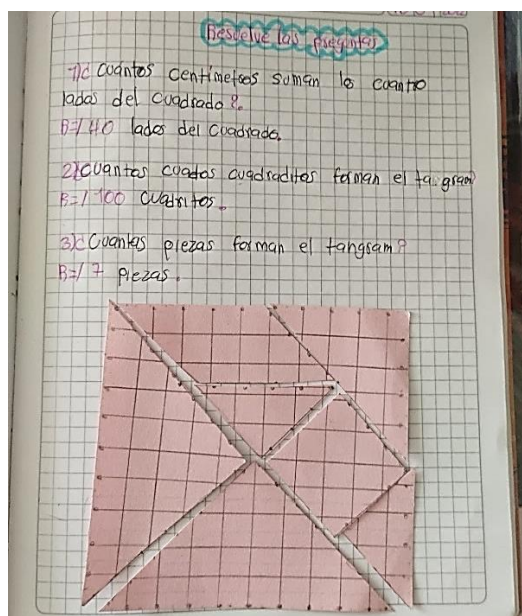 Resuelve las preguntas
1)¿ Cuántos centímetros suman los cuantro
ladas del cuadrado?.
R=/ 40 lados del cuadrado.
2)¿Cuantas cuadas cuadraditos forman el ta.gram
R=/ 100 cuadritos.
3)¿Cuantas piezas forman el tangram?
R=/ 7 piezas.